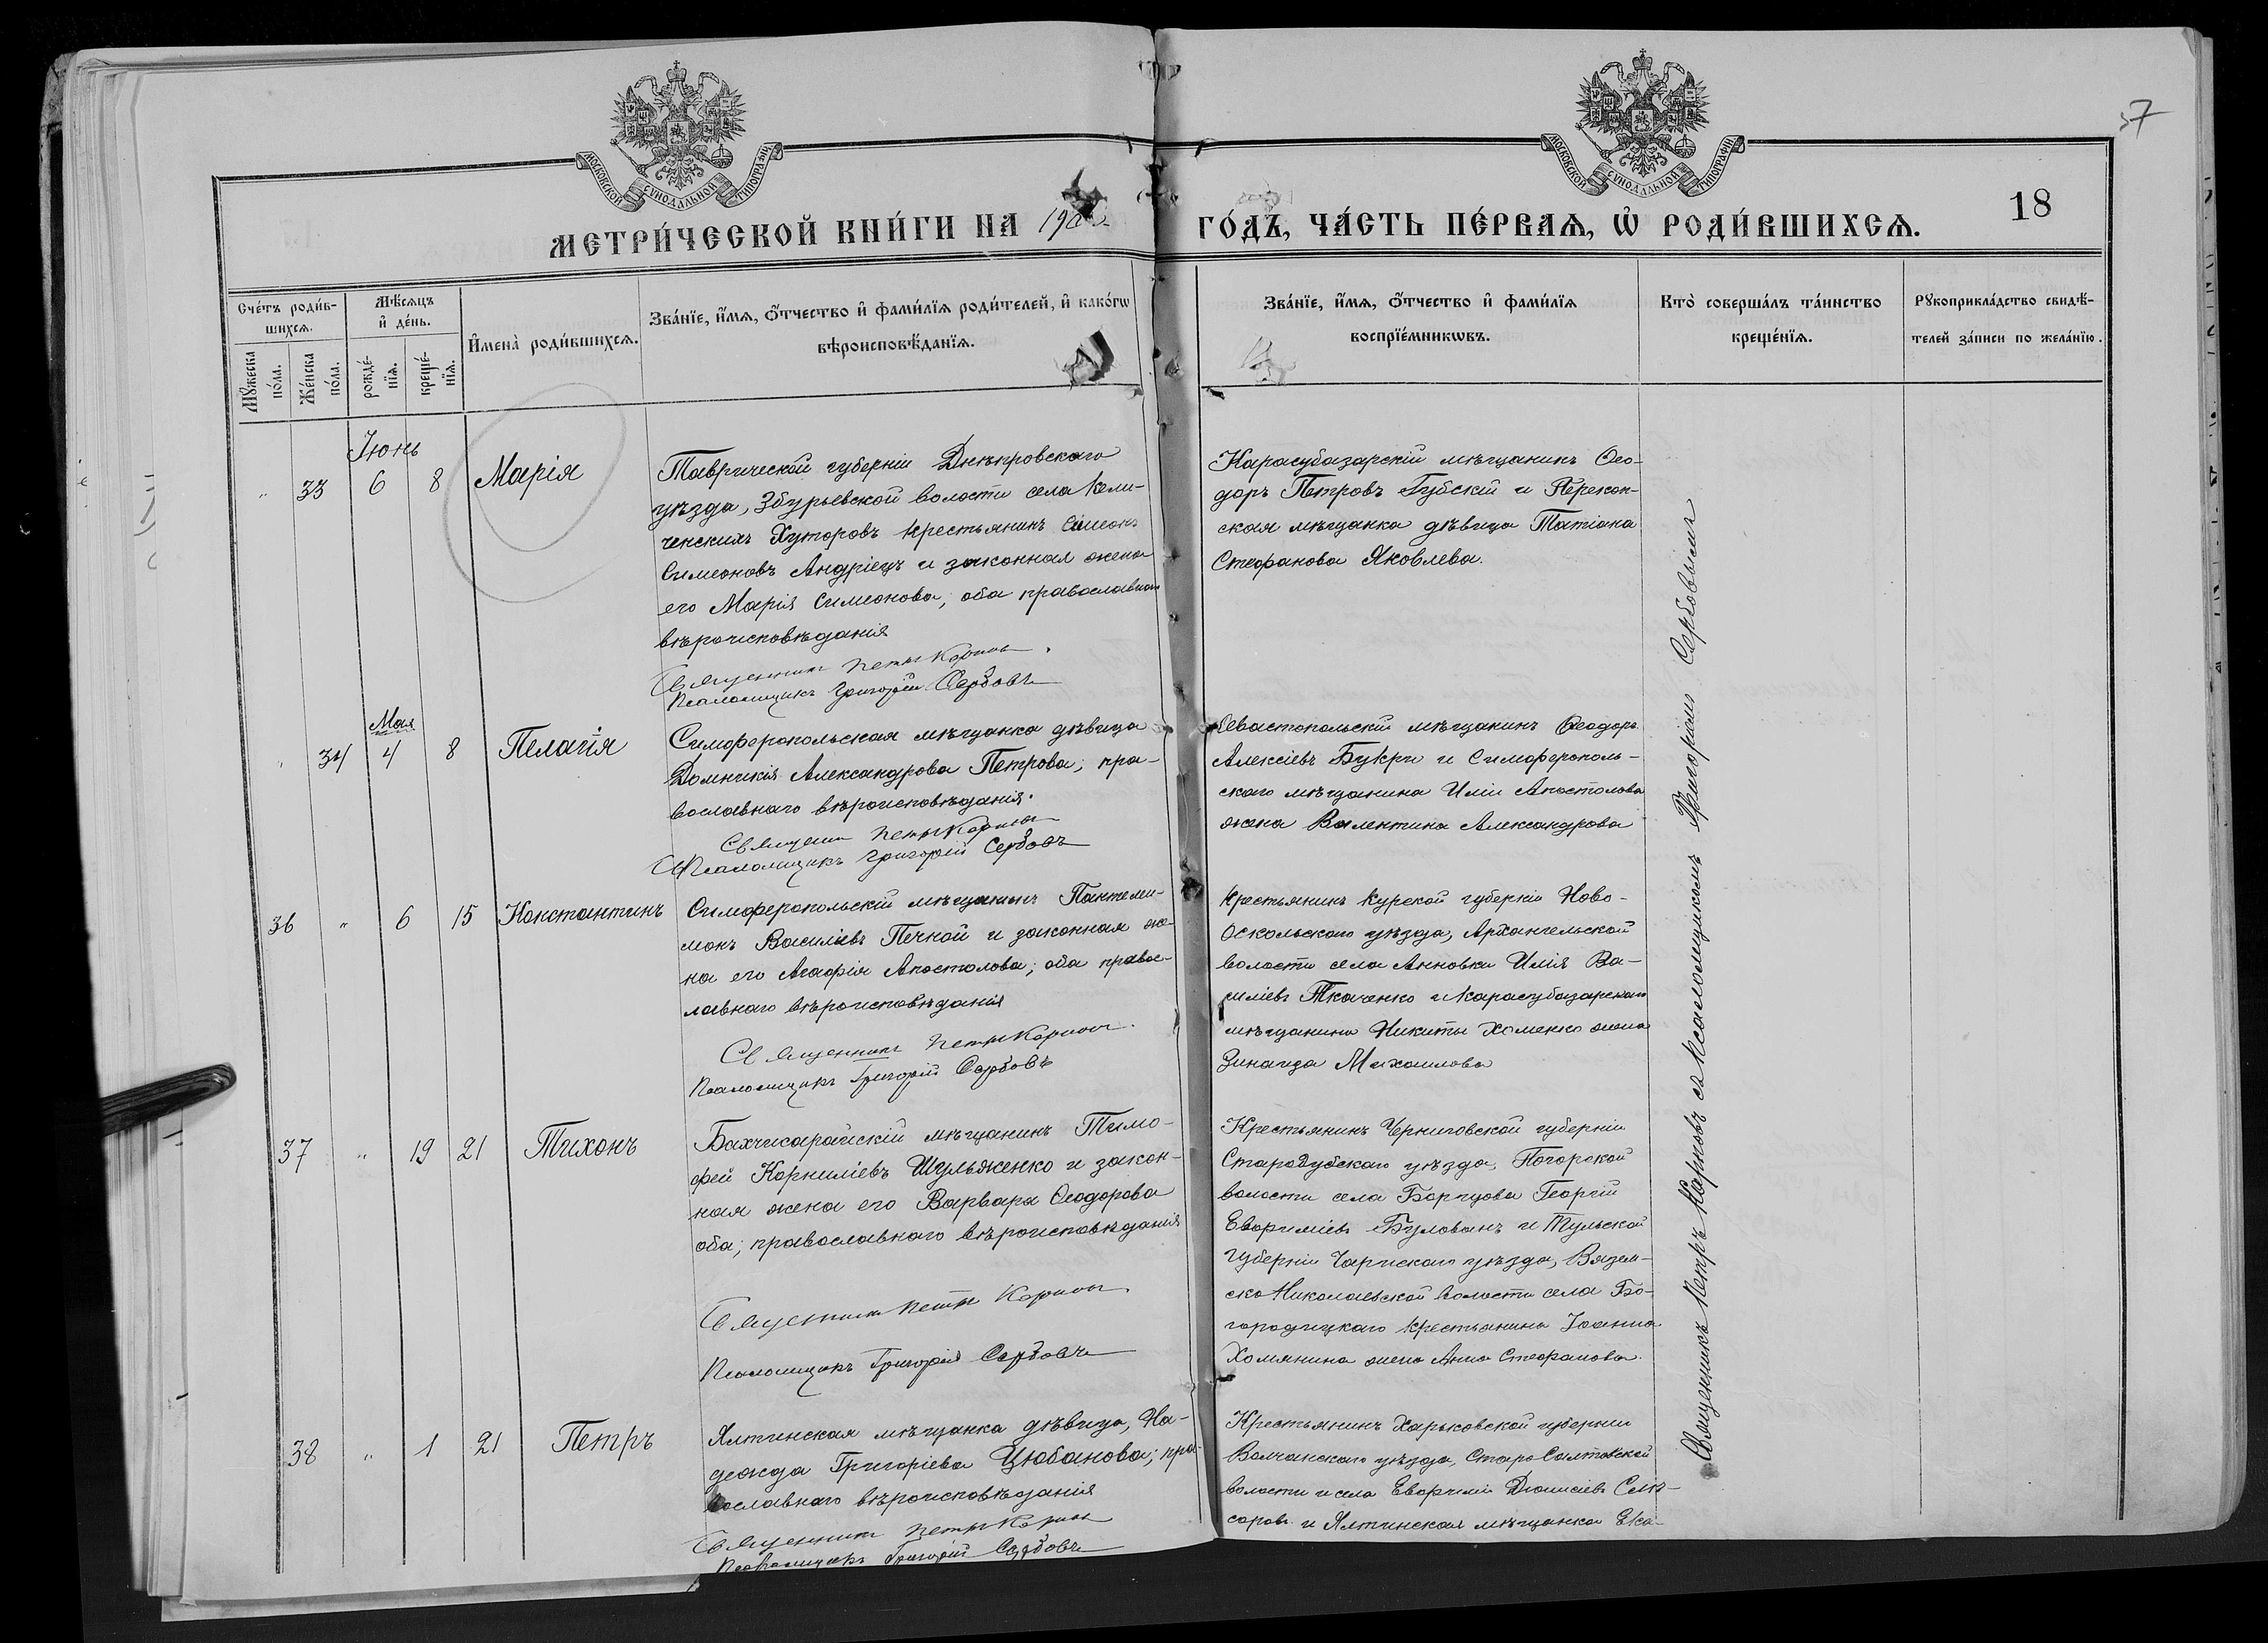 57
МОСКОВСКОЙ СѴНОДАЛЬНОЙ ТИПОГРАФІИ
МОСКОВСКОЙ СѴНОДАЛЬНОЙ ТИПОГРАФІИ
18
МЕТРИ́ЧЕСКОЙ КНИ́ГИ НА
ГО́ДЪ, ЧА́СТЬ ПЕ́РВАѦ, Ѡ҆ РОДИ́ВШИХСѦ.
Сче́тъ роди́в-
шихсѧ.
Мѣ́сѧцъ
и҆ де́нь.
Мꙋ́жеска
по́ла.
Же́нска
по́ла.
рожде́-
нїѧ.
креще́-
нїѧ.
И҆мена̀ роди́вшихсѧ.
Зва́нїе, и҆́мѧ, ѻ҆́тчество и҆ фами́лїѧ роди́телей, и҆ како́гѡ
вѣроисповѣ́данїѧ.
Зва́нїе, и҆́мѧ, ѻ҆́тчество и҆ фами́лїѧ
воспрїе́мникѡвъ.
Кто̀ соверша́лъ та́инство
креще́нїѧ.
Рꙋкоприкла́дство свидѣ́-
телей за́писи по жела́нїю.
Іюнь
" 33 6 8 Марія
Таврической губерніи Днѣпровскаго
уѣзда, Збурьевской волости села Кели-
ченскихъ Хуторовъ крестьянинъ Симеонъ
Симеоновъ Андріецъ и законная жена
его Марія Симеонова; оба православнаго
вѣроисповѣданія
Священникъ Петръ Карповъ
Псаломщикъ Григорій Сербовъ
Карасубазарскій мѣщанинъ Ѳео-
доръ Петровъ Губскій и Перекоп-
ская мѣщанка дѣвица Татіана
Стефанова Яковлева.
Мая
" 34 4 8 Пелагія
Симферопольская мѣщанка дѣвица
Домникія Александрова Петрова; пра-
вославнаго вѣроисповѣданія.
Священникъ Петръ Карповъ
Псаломщикъ Григорій Сербовъ
Севастопольскій мѣщанинъ Ѳеодоръ
Алексіевъ Букри и Симферополь-
скаго мѣщанина Иліи Апостолова
жена Валентина Александрова
36 " 6 15 Константинъ
Симферопольскій мѣщанинъ Пантеле-
монъ Василіевъ Печной и законная же-
на его Агафія Апостолова; оба правос-
лавнаго вѣроисповѣданія
Священникъ Петръ Карповъ.
Псаломщикъ Григорій Сербовъ
Крестьянинъ Курской губерніи Ново-
Оскольскаго уѣзда, Архангельской
волости села Анновки Илія Ва-
силіевъ Ткаченко и Карасубазарскаго
мѣщанина Никиты Хоменко жена
Зинаида Михаилова
37 " 19 21 Тихонъ
Бахчисарайскій мѣщанинъ Тимо-
фей Корниліевъ Шульженко и закон-
ная жена его Варвара Ѳеодорова
оба; православнаго вѣроисповѣданія
Священникъ Петръ Карповъ
Псаломщикъ Григорій Сербовъ
Крестьянинъ Черниговской губерніи
Стародубскаго уѣзда, Погорской
волости села Борщова Георгій
Евфиміевъ Булованъ и Тульской
губерніи Чарнскаго уѣзда, Вязем-
ско Николаевской волости села Бо-
городицкаго крестьянина Іоанна
Хомякина жена Анна Стефанова.
38 " 1 21 Петръ
Ялтинская мѣщанка дѣвица, На-
дежда Григоріева Цюбанова; пра-
вославнаго вѣроисповѣданія
Священникъ Петръ Карповъ
Псаломщикъ Григорій Сербовъ
Крестьянинъ Харьковской губерніи
Волчанскаго уѣзда, Старо Салтовской
волости и села Евфимій Діонисіевъ Слю-
саровъ и Ялтинская мѣщанка Ека-
Священникъ Петръ Карповъ съ Псаломщикомъ Григоріемъ Сербовымъ